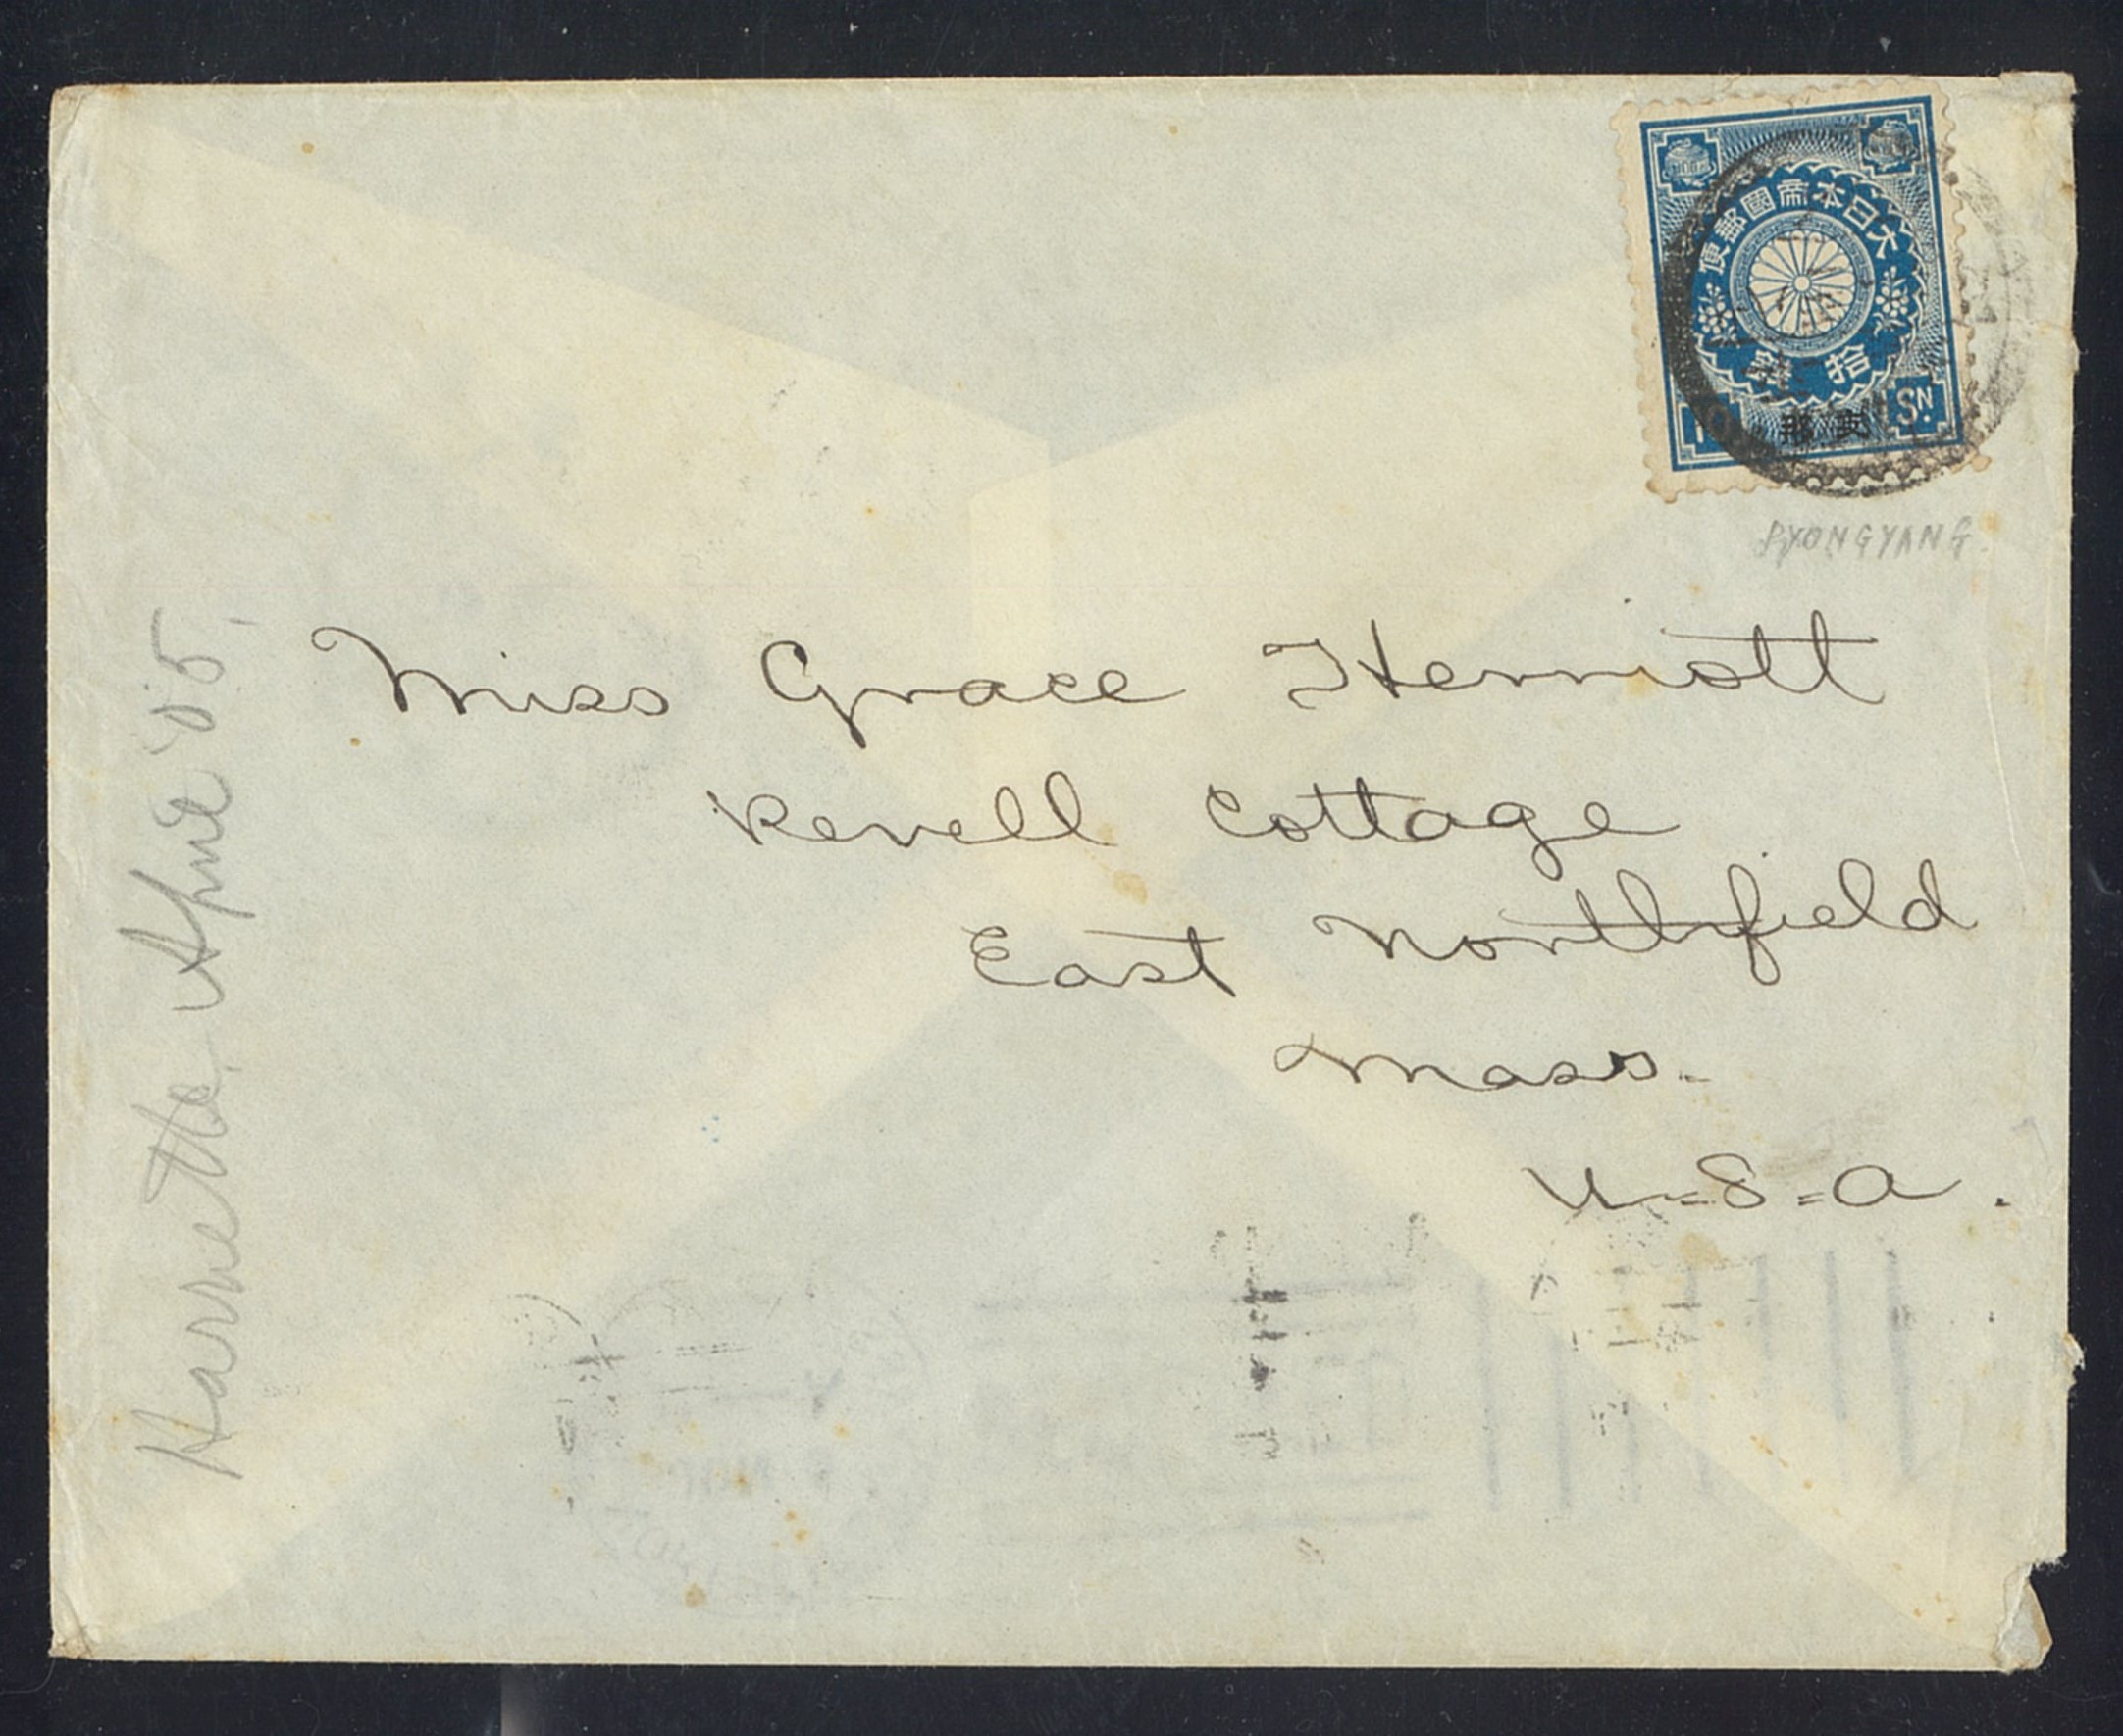 大日本帝國郵便
拾錢
10 SN.
支那
PYONGYANG.
Miss Grace Herriott
Revell Cottage
East Northfield
Mass.
U.S.A.
Harriette, April '05,